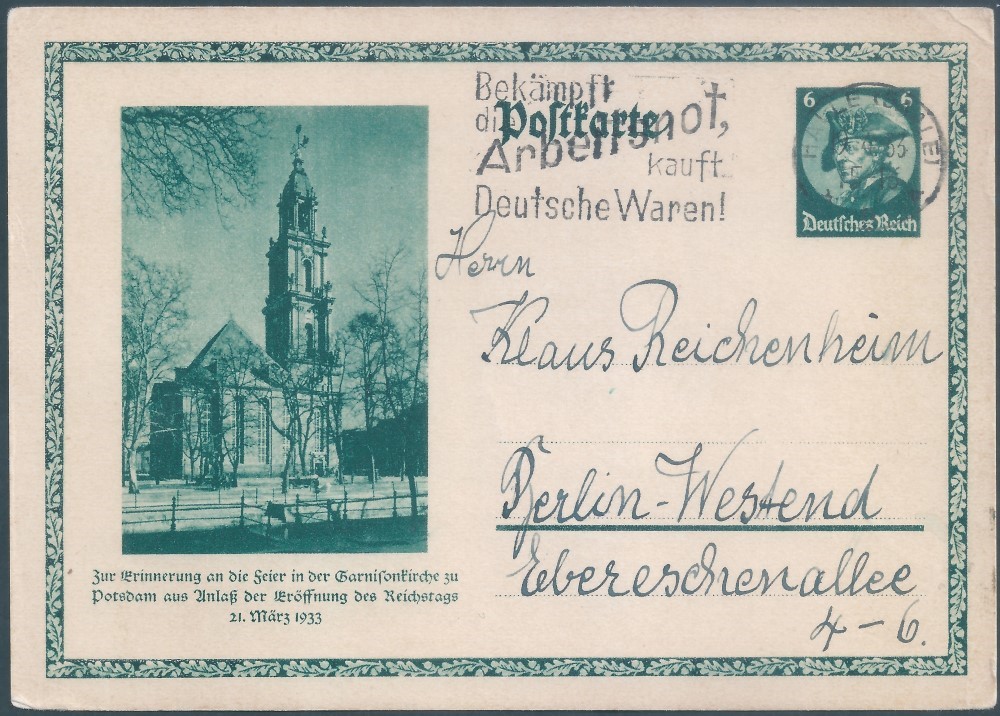 Bekämpft
die
Arbeitsnot,
kauft
Deutsche Waren!
Postkarte
6 6
Deutsches Reich
Herrn
Klaus Reichenheim
Berlin-Westend
Ebereschenallee
4-6.
Zur Erinnerung an die Feier in der Garnisonkirche zu
Potsdam aus Anlaß der Eröffnung des Reichstags
21. März 1933